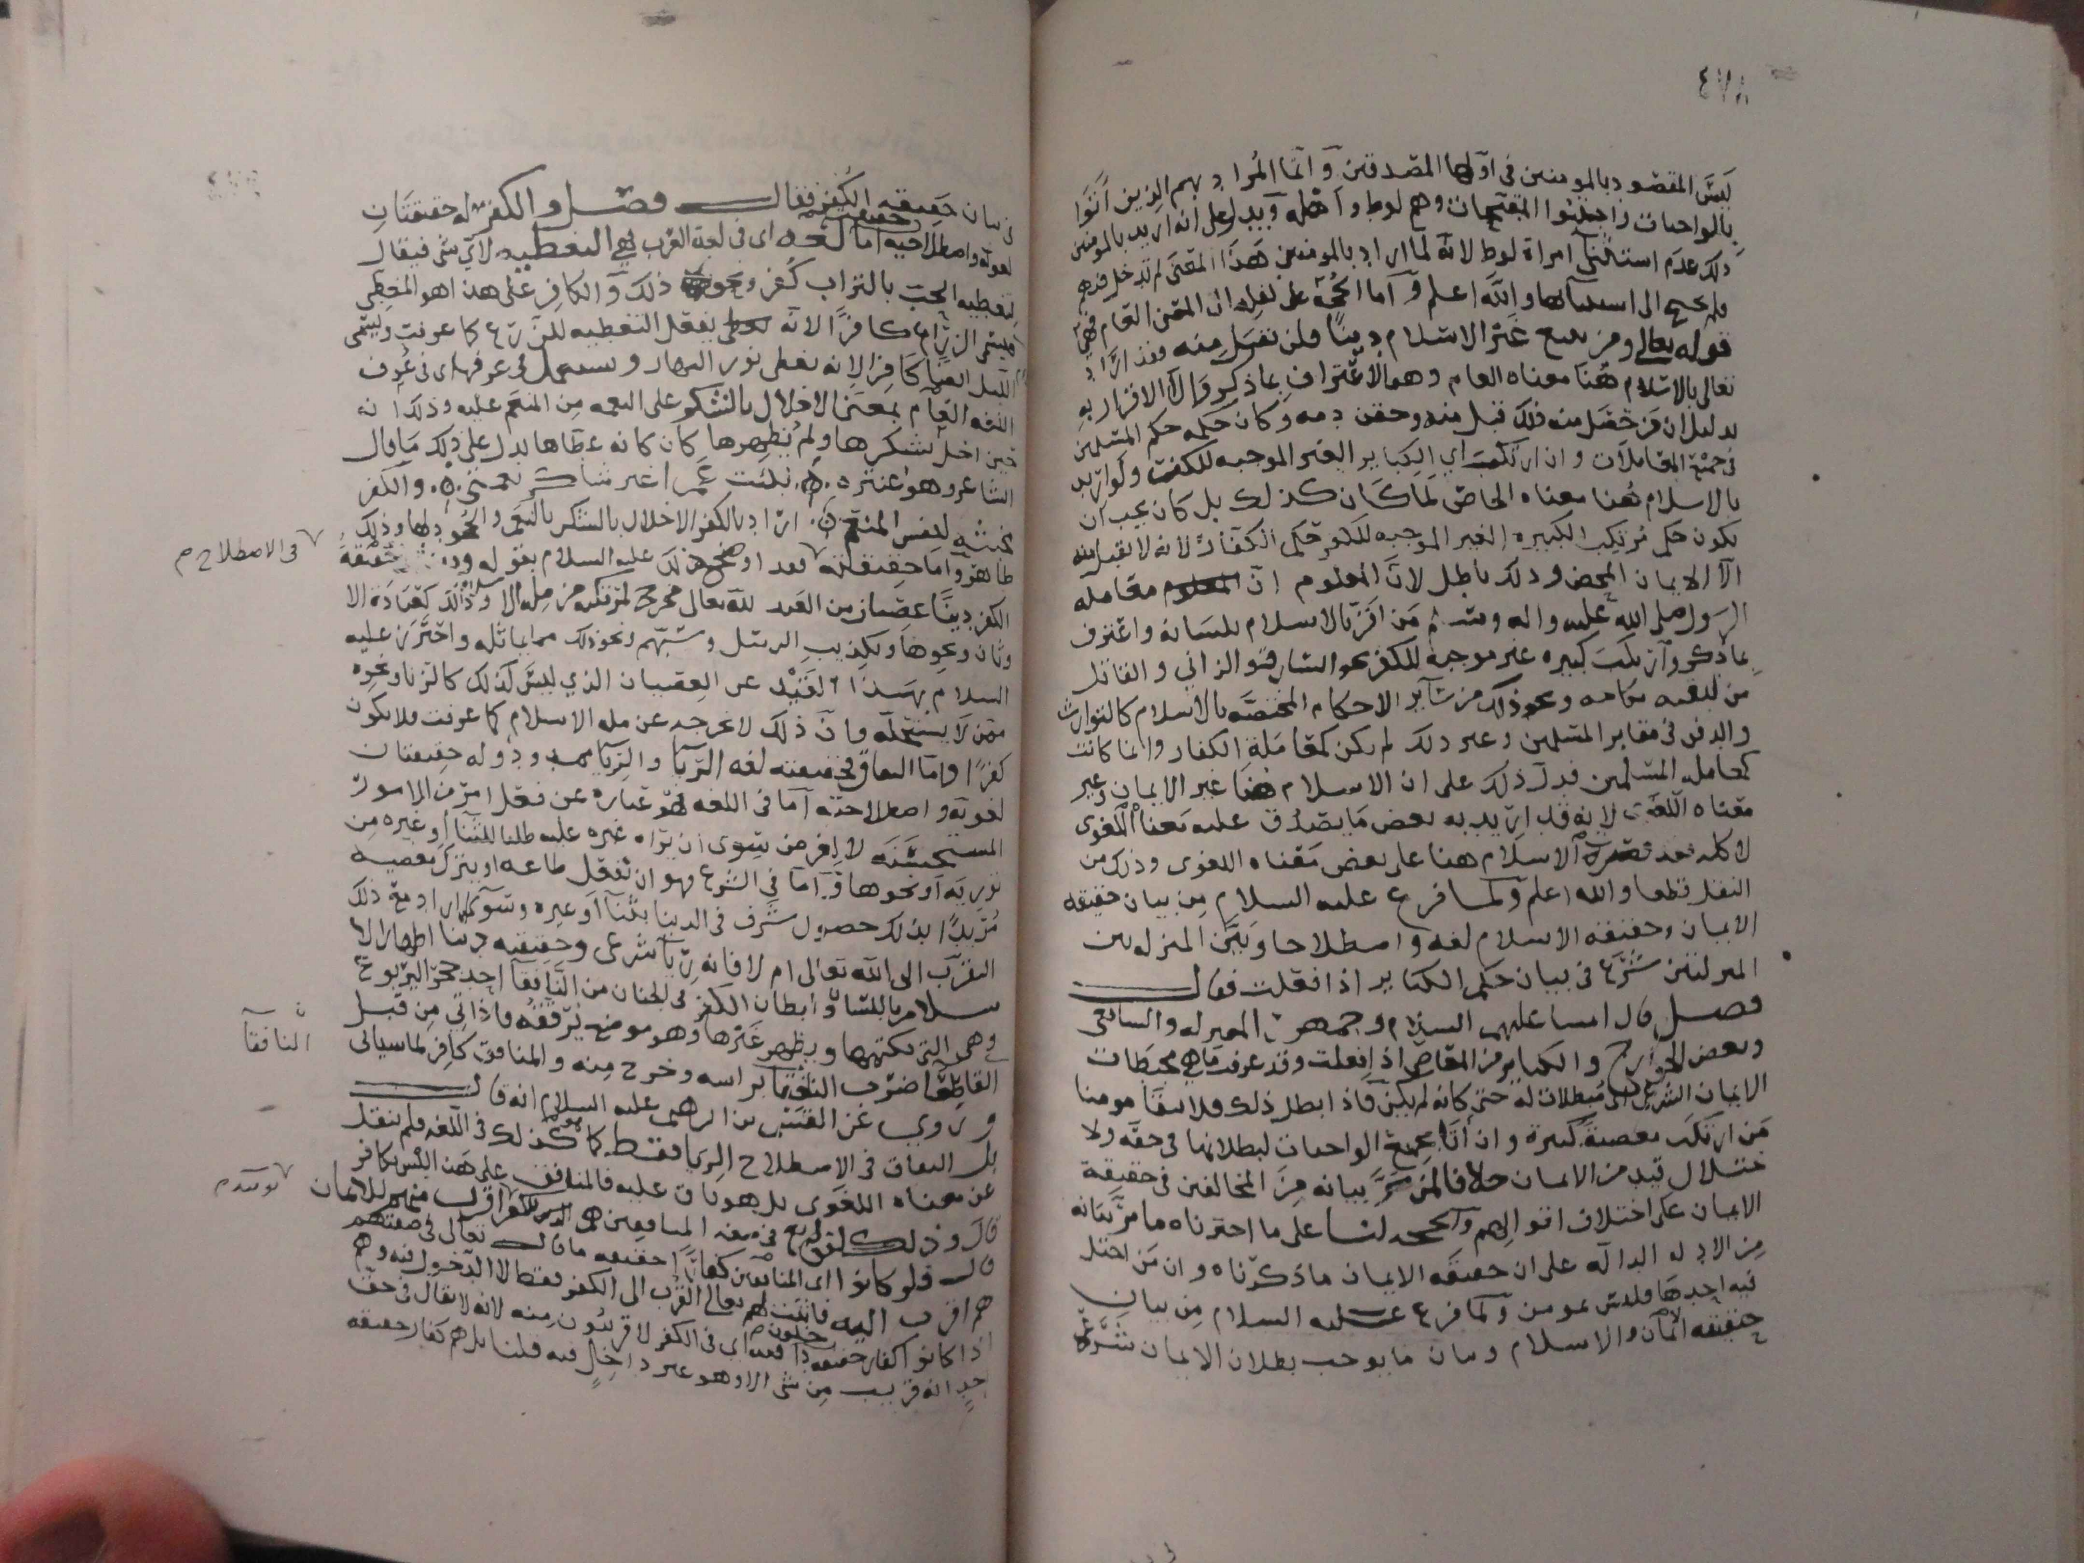 ٤٧٨
ليس المقصود بالمومنين في اولها المصدقين وانما المراد بهم الذين اتوا
بالواجبات واجتنبوا المقبحات وهم لوط واهله ويدل على انه اريد بالمومنين
ذلك عدم استثنى امراة لوط لانه لما اراد بالمومنين هذا المعنى لم تدخل فيهم
فلم يحتج الى استثنائها والله اعلم واما الحجة على نقله الى المعنى العام فهي
قوله تعالى ومن يبتغ غير الاسلام دينا فلن يقبل منه فقد اراد
تعالى بالاسلام هنا معناه العام وهو الاعتراف بما ذكر والا الاقرار به
بدليل ان من حصل منه ذلك قبل منه وحقن دمه وكان حكمه حكم المسلمين
في جميع المعاملات وان ارتكب اي الكباير الغير الموجبه للكفر ولو اريد
بالاسلام هنا معناه الخاص لما كان كذلك بل كان يجب ان
يكون حكم مرتكب الكبيره الغير الموجبه للكفر حكم الكفار لانه لا يقبل منه
الا الايمان المحض وذلك باطل لان المعلوم ان معامله
الرسول صلى الله عليه واله وسلم من اقر بالاسلام بلسانه واعترف
بما ذكر وارتكب كبيره غير موجبه للكفر نحو السارق والزاني والقاتل
من تبقيه نكاحه ونحو ذلك من سآير الاحكام المختصه بالاسلام كالتوارث
والدفن في مقابر المسلمين وغير ذلك لم يكن كمعاملة الكفار وانما كانت
كمعامله المسلمين فدل ذلك على ان الاسلام هنا غير الايمان وغير
معناه اللغوي لانه قد اريد به بعض ما يصدق عليه معناه اللغوي
لا كله فقد قصر الاسلام هنا على بعض معناه اللغوي وذلك من
النقل قطعا والله اعلم ولما فرغ عليه السلام من بيان حقيقه
الايمان وحقيقه الاسلام لغه واصطلاحا وبين المنزله بين
المنزلتين شرع في بيان حكم الكباير اذا فعلت فقال
فصل قال امتنا عليهم السلام وجمهور المعتزله والشافعي
وبعض الخوارج والكباير من المعاصي اذا فعلت وقد عرفت ماهي محبطات
الايمان الشرعي اي مبطلات له حتى كانه لم يكن فاذا بطل ذلك فلا يبقا مومنا
من ارتكب معصية كبيرة وان اتا بجميع الواجبات لبطلانها في حقه ولا
ختلال قيد من الايمان خلافا لمن مر بيانه من المخالفين في حقيقة
الايمان على اختلاف اقوالهم والحجه لنا على ما اخترناه ما مر بيانه
من الادله الداله على ان حقيقه الايمان ما ذكرناه وان من اختل
فيه احدها فليس بمومن ولما فرغ عليه السلام من بيان
حقيقه الايمان والاسلام وبيان ما يوجب بطلان الايمان شرع
في بيان حقيقه الكفر فقال فصل والكفر له حقيقتان
لغويه واصطلاحيه اما حقيقته لغه اي في لغة العرب فهي التغطيه لاي شي فيقال
لتغطيه الحب بالتراب كفر ونحو ذلك والكافر على هذا هو المغطي
فيسمى الزراع كافرا لانه يفعل التغطيه للزرع كما عرفت ويسمى
الليل ايضا كافرا لانه يغطي نور النهار ويستعمل في عرفها اي في عرف
اللغه العام بمعنى الاخلال بالشكر على النعمه من المنعم عليه وذلك انه
حين اخل بشكرها ولم يظهرها كان كانه غطاها يدل على ذلك ما قال
الشاعر وهو عنتره نبئت عمرا غير شاكر نعمتي والكفر
مخبثه لنفس المنعم اراد بالكفر الاخلال بالشكر بالنعم والجحود لها وذلك
ظاهر واما حقيقته في الاصطلاح فقد اوضح ذلك عليه السلام بقوله و حقيقة
الكفر دينا عصيان من العبد لله تعالى مخرج لمرتكبه من مله الاسلام وذلك كعبادة الا
وثان ونحوها وتكذيب الرسل وسبهم ونحو ذلك مما يماثله واحترز عليه
السلام بهذا القيد عن العصيان الذي ليس كذلك كالزنا ونحوه
ممن لا يستحله فان ذلك لا يخرجه عن مله الاسلام كما عرفت فلا يكون
كفرا واما النفاق فحقيقته لغه الريا والريا ممدود وله حقيقتان
لغويه واصطلاحيه اما في اللغه فهو عباره عن فعل امر من الامور
المستحسنه لا لغرض سوى ان يراه غيره عليه طلبا للثنا او غيره من
توريه او نحوها واما في الشرع فهو ان تفعل طاعه او يترك معصيه
مريدا بذلك حصول شرف في الدنيا بثنا او غيره وسوا اراد مع ذلك
التقرب الى الله تعالى ام لا فانه ريآ شرعي وحقيقته دينا اظهار الا
سلام باللسان وابطان الكفر في الجنان من النافقا احد جحر اليربوع
وهي التي يكتمها ويظهر غيرها وهو موضع يرققه فاذا اتي من قبل
القاصعا ضرب النافقا براسه وخرج منه والمنافق كافر لما سياتي
النافقآ
وروي عن القسم بن ابراهيم عليه السلام انه قال
بل النفاق في الاصطلاح الريا فقط كما هو كذلك في اللغه فلم ينقل
عن معناه اللغوي بل هو باق عليه فالمنافق على هذا ليس بكافر
قال وذلك لقوله تع في صفه المنافقين هم للكفر يومئذ اقرب منهم للايمان
قال فلو كانوا اي المنافقين كفارا حقيقه ما قال تعالى في صفتهم
هم اقرب اليه فاثبت لهم تعالى القرب الى الكفر فقط لا الدخول فيه وهم
اذا كانوا كفار حقيقه داخلون فيه اي في الكفر لا قريبون منه لانه لا يقال في حق
احد انه قريب من شي الا وهو غير داخل فيه قلنا بل هم كفار حقيقه